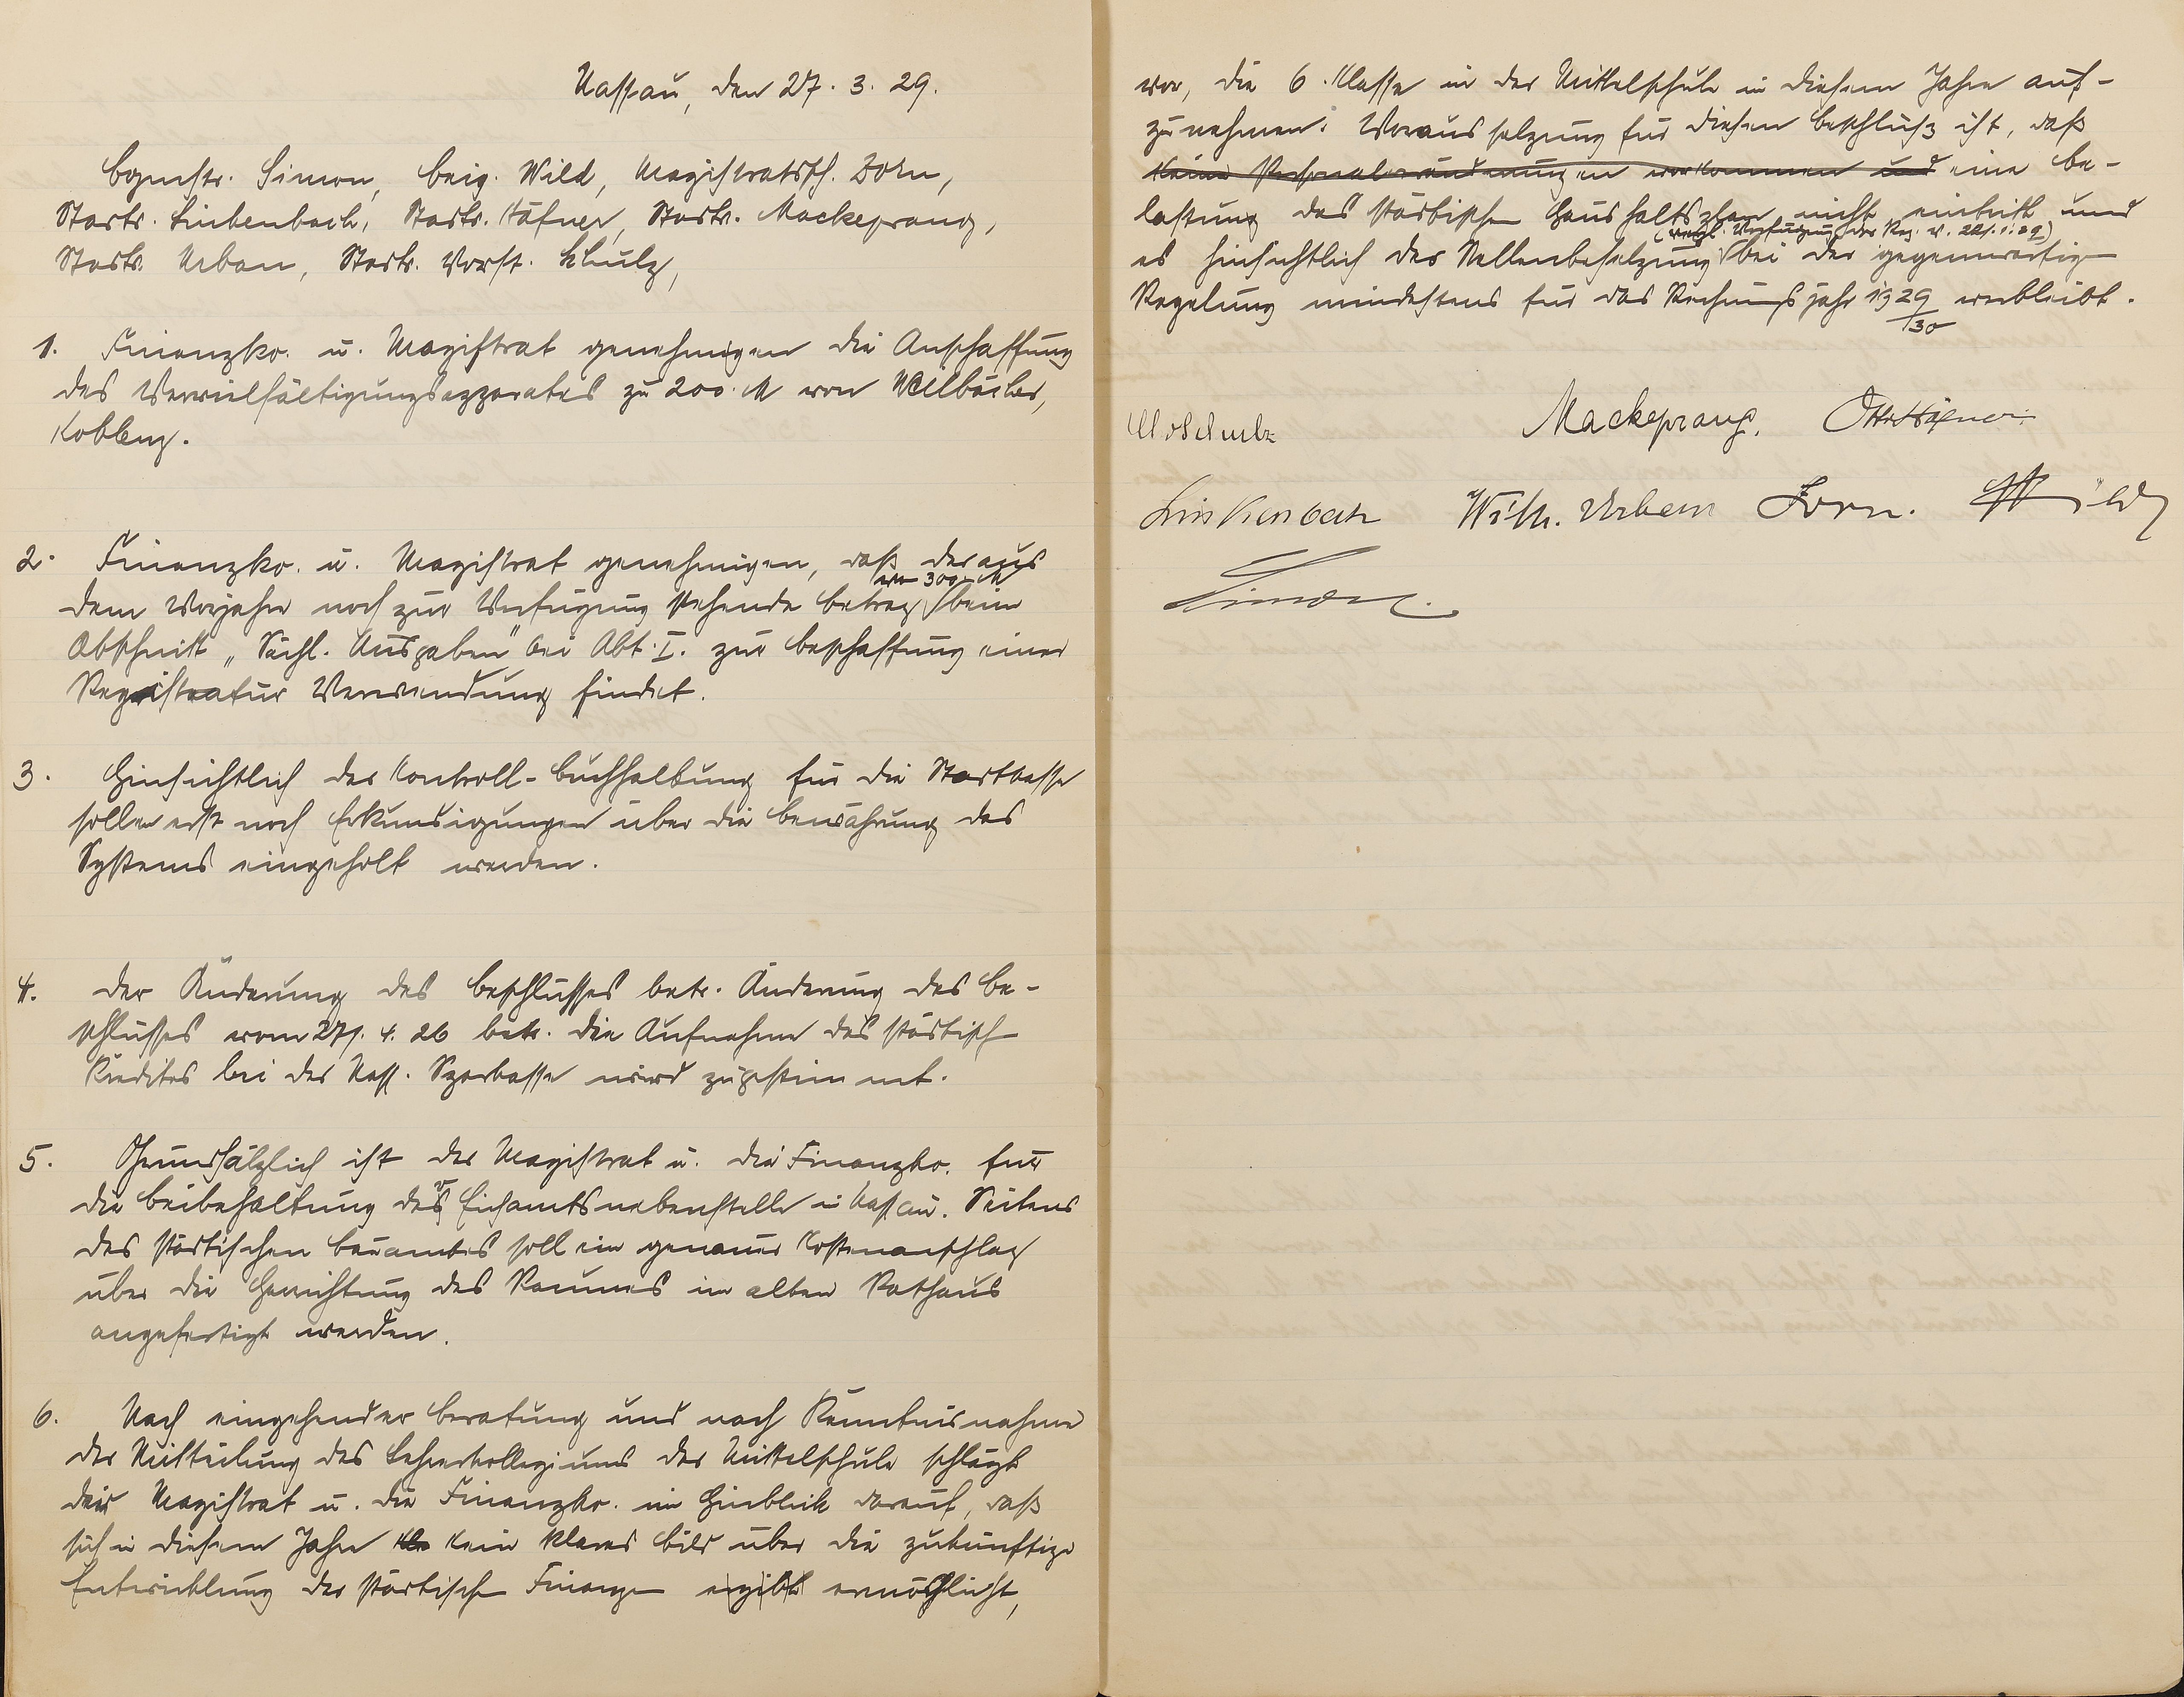 Nassau, den 27. 3. 29.
Bgmstr. Simon, Beig. Wild, Magistratssch. Dorn,
Stadtr. Linkenbach, Stadtr. Häfner, Stadtr. Mackeprang,
Stadtr. Urban, Stadtv. Vorst. Schulz,
1. Finanzko. u. Magistrat genehmigen die Anschaffung
des Vervielfältigungsapparates zu 200 M von Wellbächer,
Koblenz.
2. Finanzko. u. Magistrat genehmigen, daß der aus
von 300 M
dem Vorjahre noch zur Verfügung stehende Betrag beim
Abschnitt „Sächl. Ausgaben" bei Abt. I. zur Beschaffung einer
Registratur Verwendung findet.
3. Hinsichtlich der Kontroll-Buchhaltung für die Stadtkasse
sollen erst noch Erkundigungen über die Bewährung des
Systems eingeholt werden.
4. Der Änderung des Beschlusses betr. Änderung des Be-
schlusses vom 27. 4. 26 betr. die Aufnahme des städtisch
Kredites bei der Nass. Sparkasse wird zugestimmt.
5. Grundsätzlich ist der Magistrat u. die Finanzko. für
die Beibehaltung der Eichamtsnebenstelle in Nassau. Seitens
des städtischen Bauamtes soll ein genauer Kostenanschlag
über die Herrichtung des Raumes im alten Rathaus
angefertigt werden.
6. Nach eingehender Beratung und nach Kenntnisnahme
der Mitteilung des Lehrerkollegiums der Mittelschule schlägt
der Magistrat u. die Finanzko. im Hinblick darauf, daß
sich in diesem Jahre kein klares Bild über die zukünftige
Entwicklung der städtische Finanzen ergibt ermöglicht,
vor, die 6. Klasse in der Mittelschule in diesem Jahre auf-
zunehmen. Voraussetzung für diesen Beschluß ist, daß
keine Personalveränderungen vorkommen und eine Be-
lastung des städtischen Haushaltsplan nicht eintritt und
(vergl. Verfügung der Reg. v. 22.1.29)
es hinsichtlich der Stellenbesetzung bei der gegenwärtigen
Regelung mindestens für das Rechnungsjahr 1929/30 verbleibt.
Mackeprang. Otto Häfner
Linkenbach Wilh. Urban Dorn. Wild
Simon.